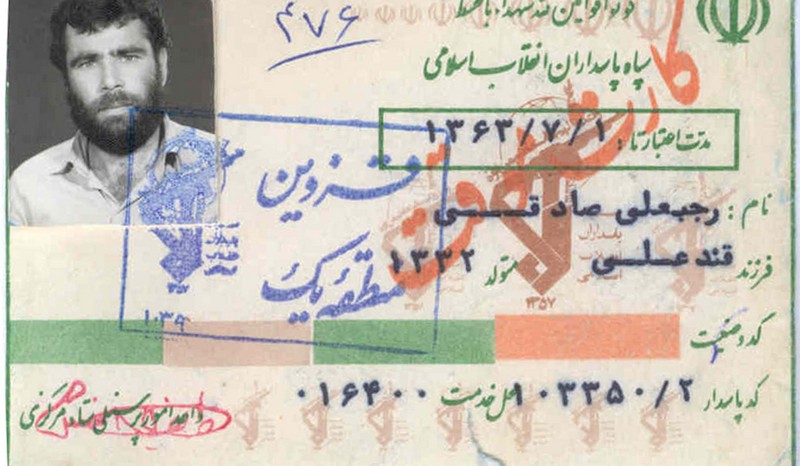 ۴۷۶
سپاه پاسداران انقلاب اسلامی
کارت موقت
مدت اعتبار تا : ۱۳۶۳/۷/۱
نام : رجبعلی صادقی
فرزند قندعلی متولد ۱۳۳۲
قزوین
منطقه یک
۱۰۳۹
۱۳۵۷
کد وضعیت
کد پاسدار ۱۰۳۳۵۰/۲ محل خدمت ۰۱۶۴۰۰
واحد امور پرسنلی ستاد مرکزی